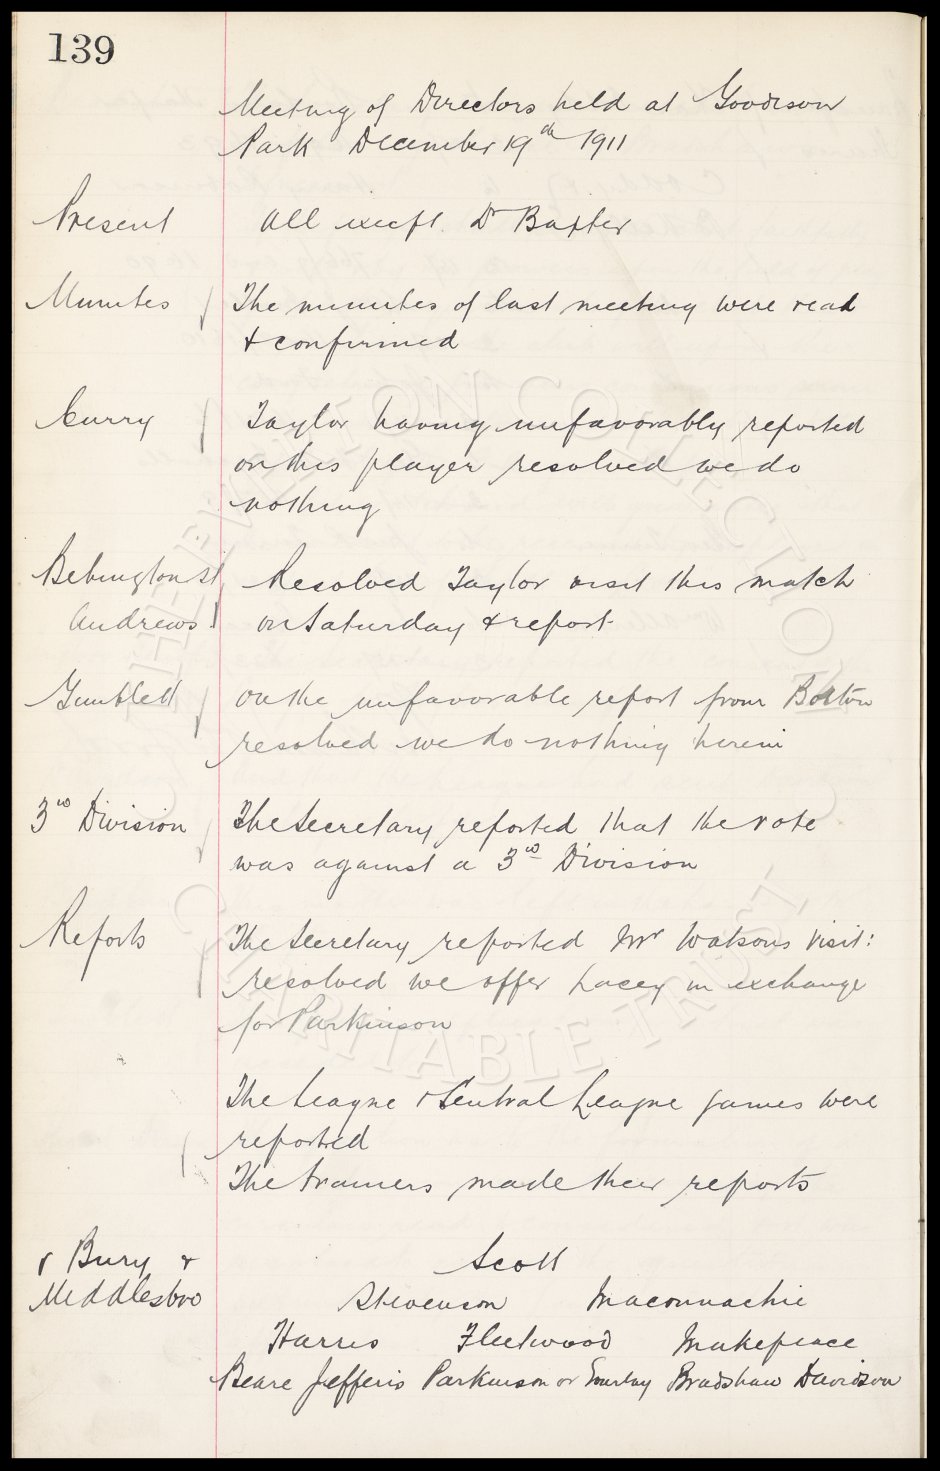 139
Meeting of Directors held at Goodison
Park December 19th 1911
Present All except Dr Baxter
Minutes The minutes of last meeting were read
& confirmed
Curry Taylor having unfavorably reported
on this player resolved we do
nothing
Bebington St Resolved Taylor visit this match
Andrews on Saturday & report
Gumblett On the unfavorable report from Bolton
resolved we do nothing herein
3rd Division The Secretary reported that the vote
was against a 3rd Division
Reports The Secretary reported Mr Watsons visit:
resolved we offer Lacey in exchange
for Parkinson
The League & Central League games were
reported
The trainers made their reports
v Bury & Scott
Middlesbro Stevenson Maconnachie
Harris Fleetwood Makepeace
Beare Jefferis Parkinson or Gourlay Bradshaw Davidson
THE EVERTON COLLECTION
CHARITABLE TRUST